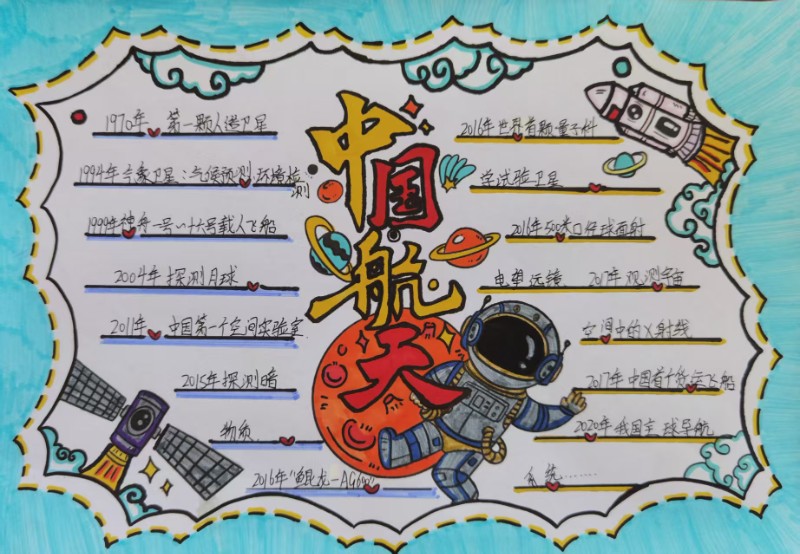 中国航天
1970年 第一颗人造卫星
1994年气象卫星:气候预测,环境检
测
1999年神舟一号~十六号载人飞船
2004年 探测月球
2011年 中国第一个空间实验室
2015年 探测暗
物质
2016年“鲲龙-AG600”
2016年世界首颗量子科
学试验卫星
2016年500米口径球面射
电望远镜 2017年 观测宇宙
空间中的X射线
2017年中国首个货运飞船
2020年 我国全球导航
系统……